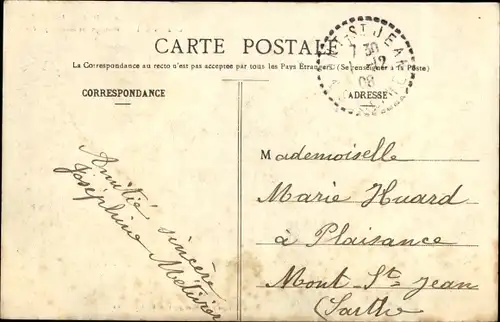 CARTE POSTALE
La Correspondance au recto n'est pas acceptée par tous les Pays Etrangers (Se renseigner à la Poste)
CORRESPONDANCE
ADRESSE
ST JEAN
7 30
12
08
Amitié sincère
Joséphine Métivier
Mademoiselle
Marie Huard
à Plaisance
Mont St= Jean
(Sarthe